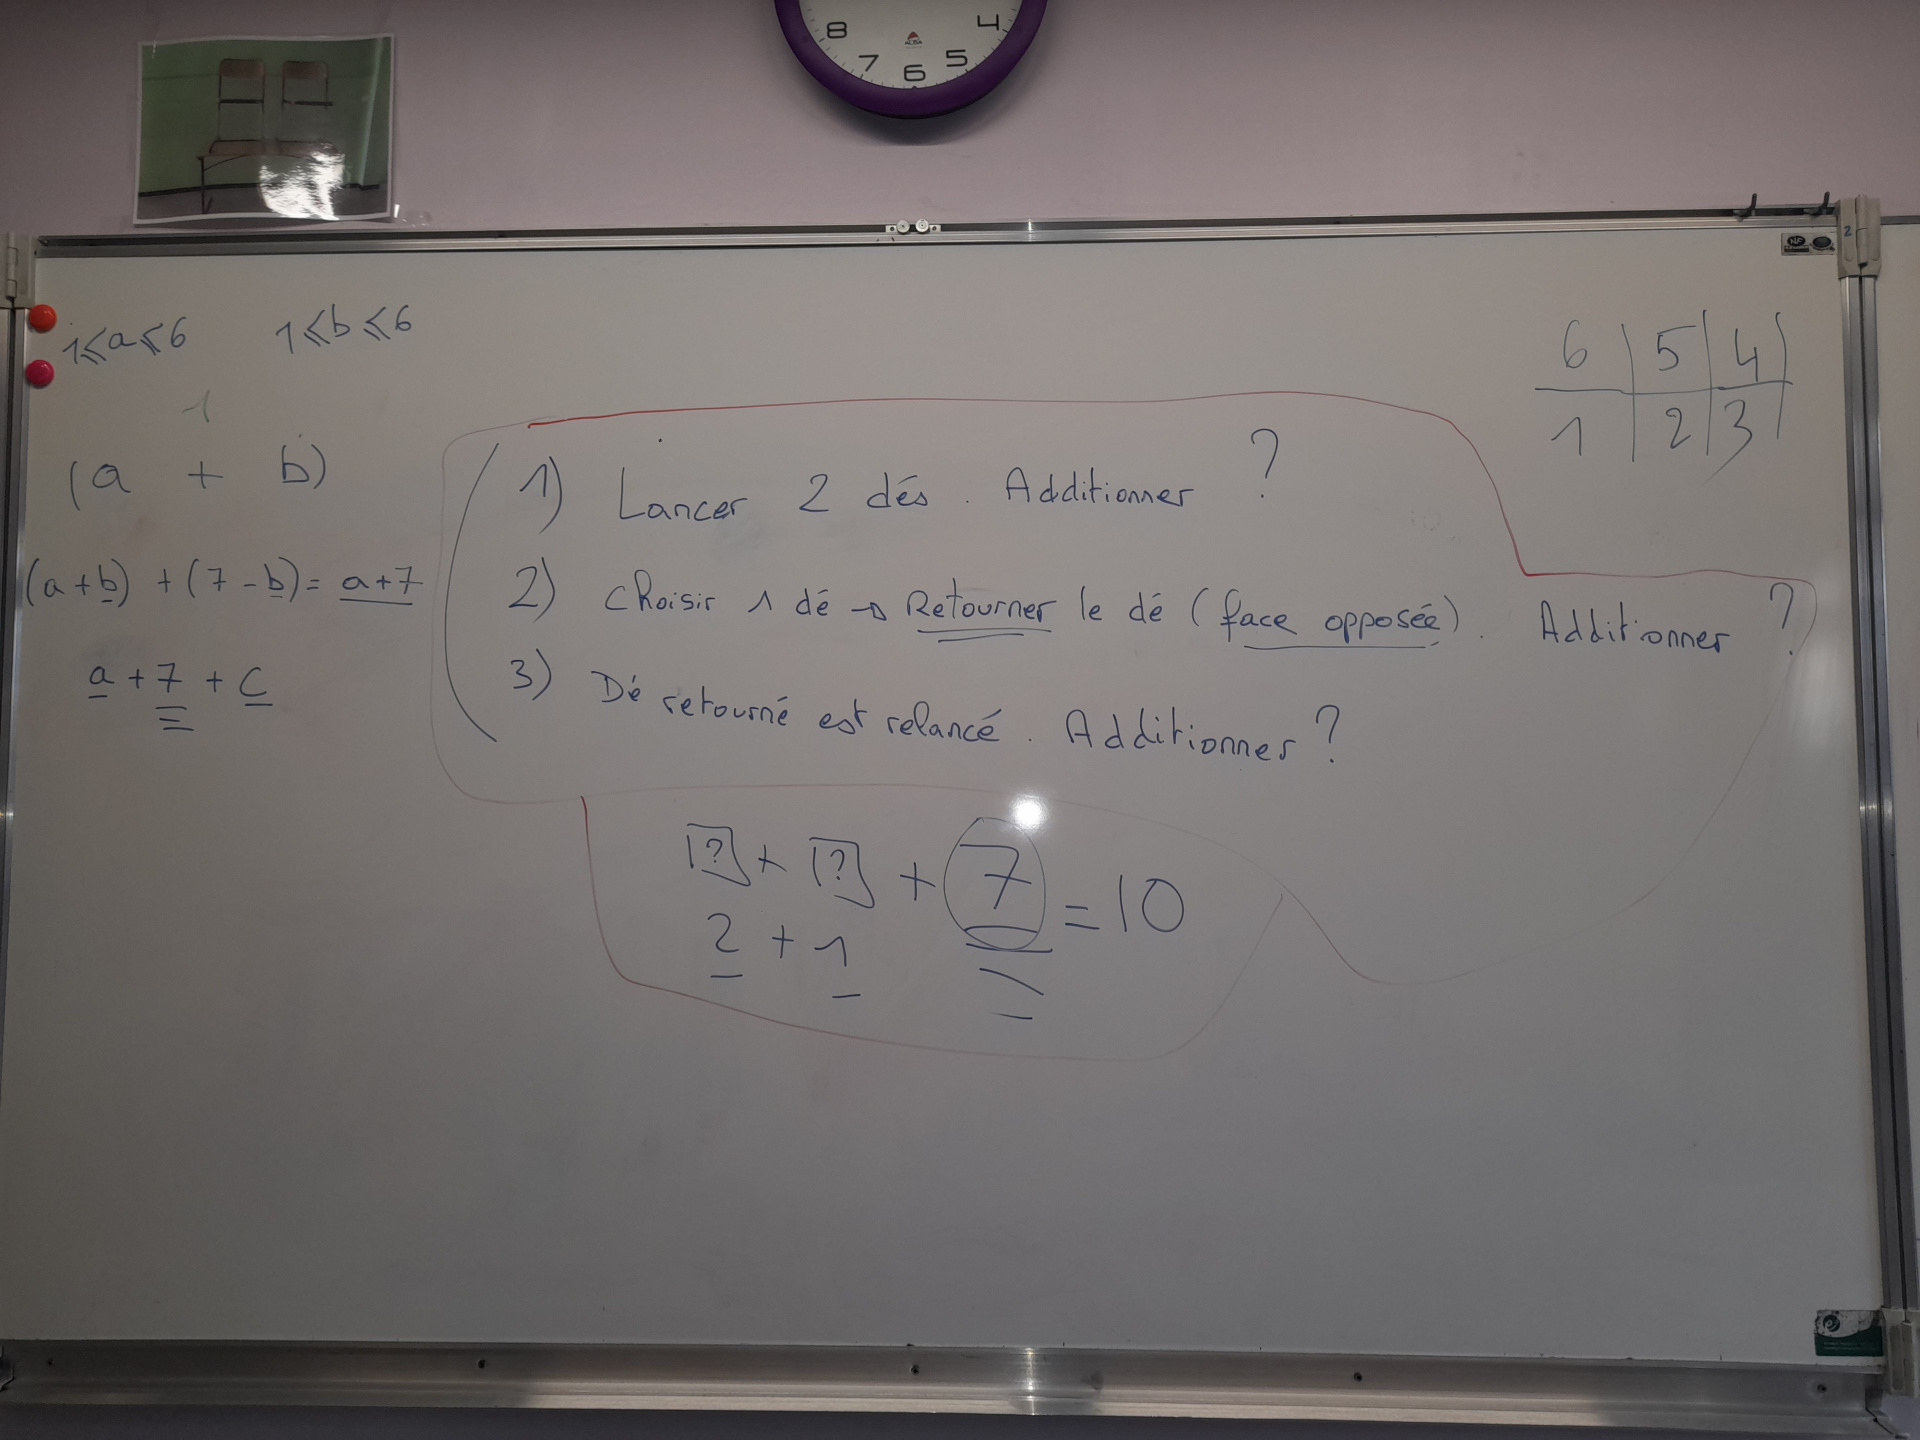 8 7 6 5 4
ALBA
2
NF
1⩽a⩽6 1⩽b⩽6
6 | 5 | 4
1 | 2 | 3
1
(a + b)
(a+b) + (7-b) = a+7
a + 7 + c
1) Lancer 2 dés. Additionner ?
2) Choisir 1 dé → Retourner le dé (face opposée). Additionner ?
3) Dé retourné est relancé. Additionner ?
? + ? + 7 = 10
2 + 1